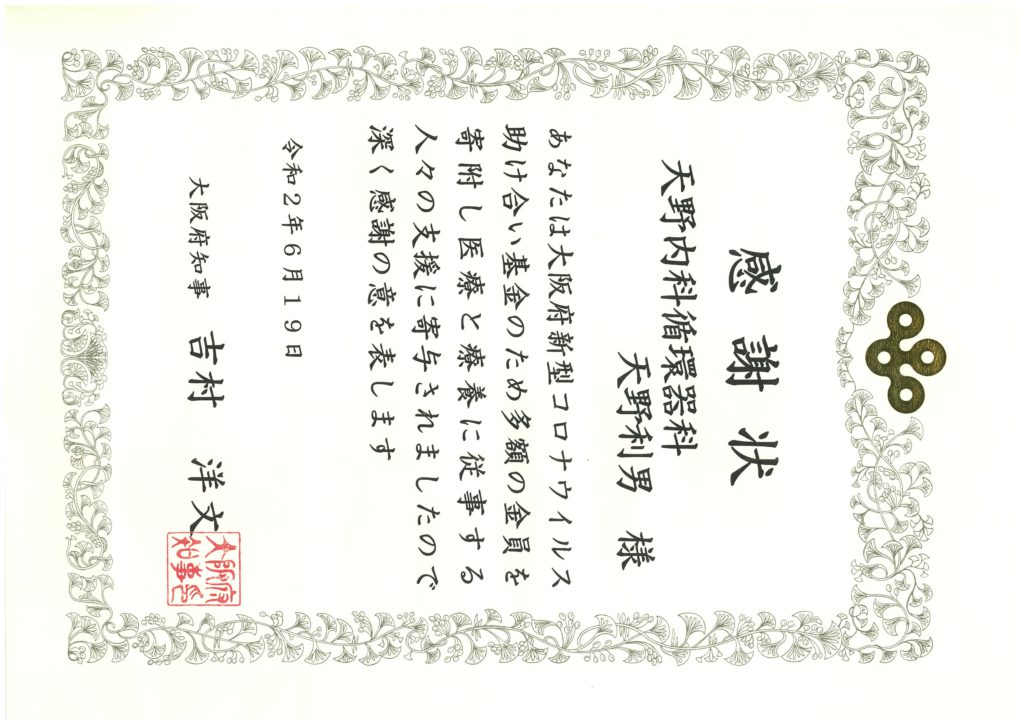 感謝状
天野内科循環器科
天野利男 様
あなたは大阪府新型コロナウイルス
助け合い基金のため多額の金員を
寄附し医療と療養に従事する
人々の支援に寄与されましたので
深く感謝の意を表します
令和2年6月19日
大阪府知事 吉村 洋文
大阪府
知事印